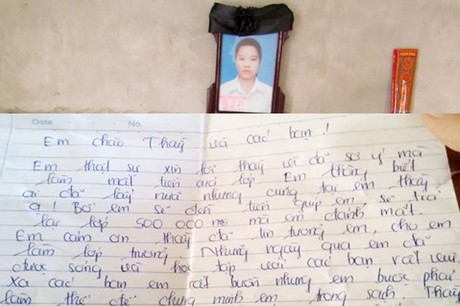 Date No.
Em chào Thầy và các bạn!
Em thật sự xin lỗi thầy vì đã sơ ý mà
làm mất tiền của lớp. Em không biết
ai đã lấy nữa nhưng cũng tại em thầy
ạ! Bởi em sẽ đền tiền em sẽ trả
lại lớp 500 000 mà em đánh mất.
Em cảm ơn thầy đã tin tưởng em, cho em
làm lớp trưởng. Những ngày qua em đã
được sống và học tập với các bạn rất vui.
Xa các bạn em rất buồn nhưng em buộc phải
làm thế để chứng minh em trong sạch. Thầy